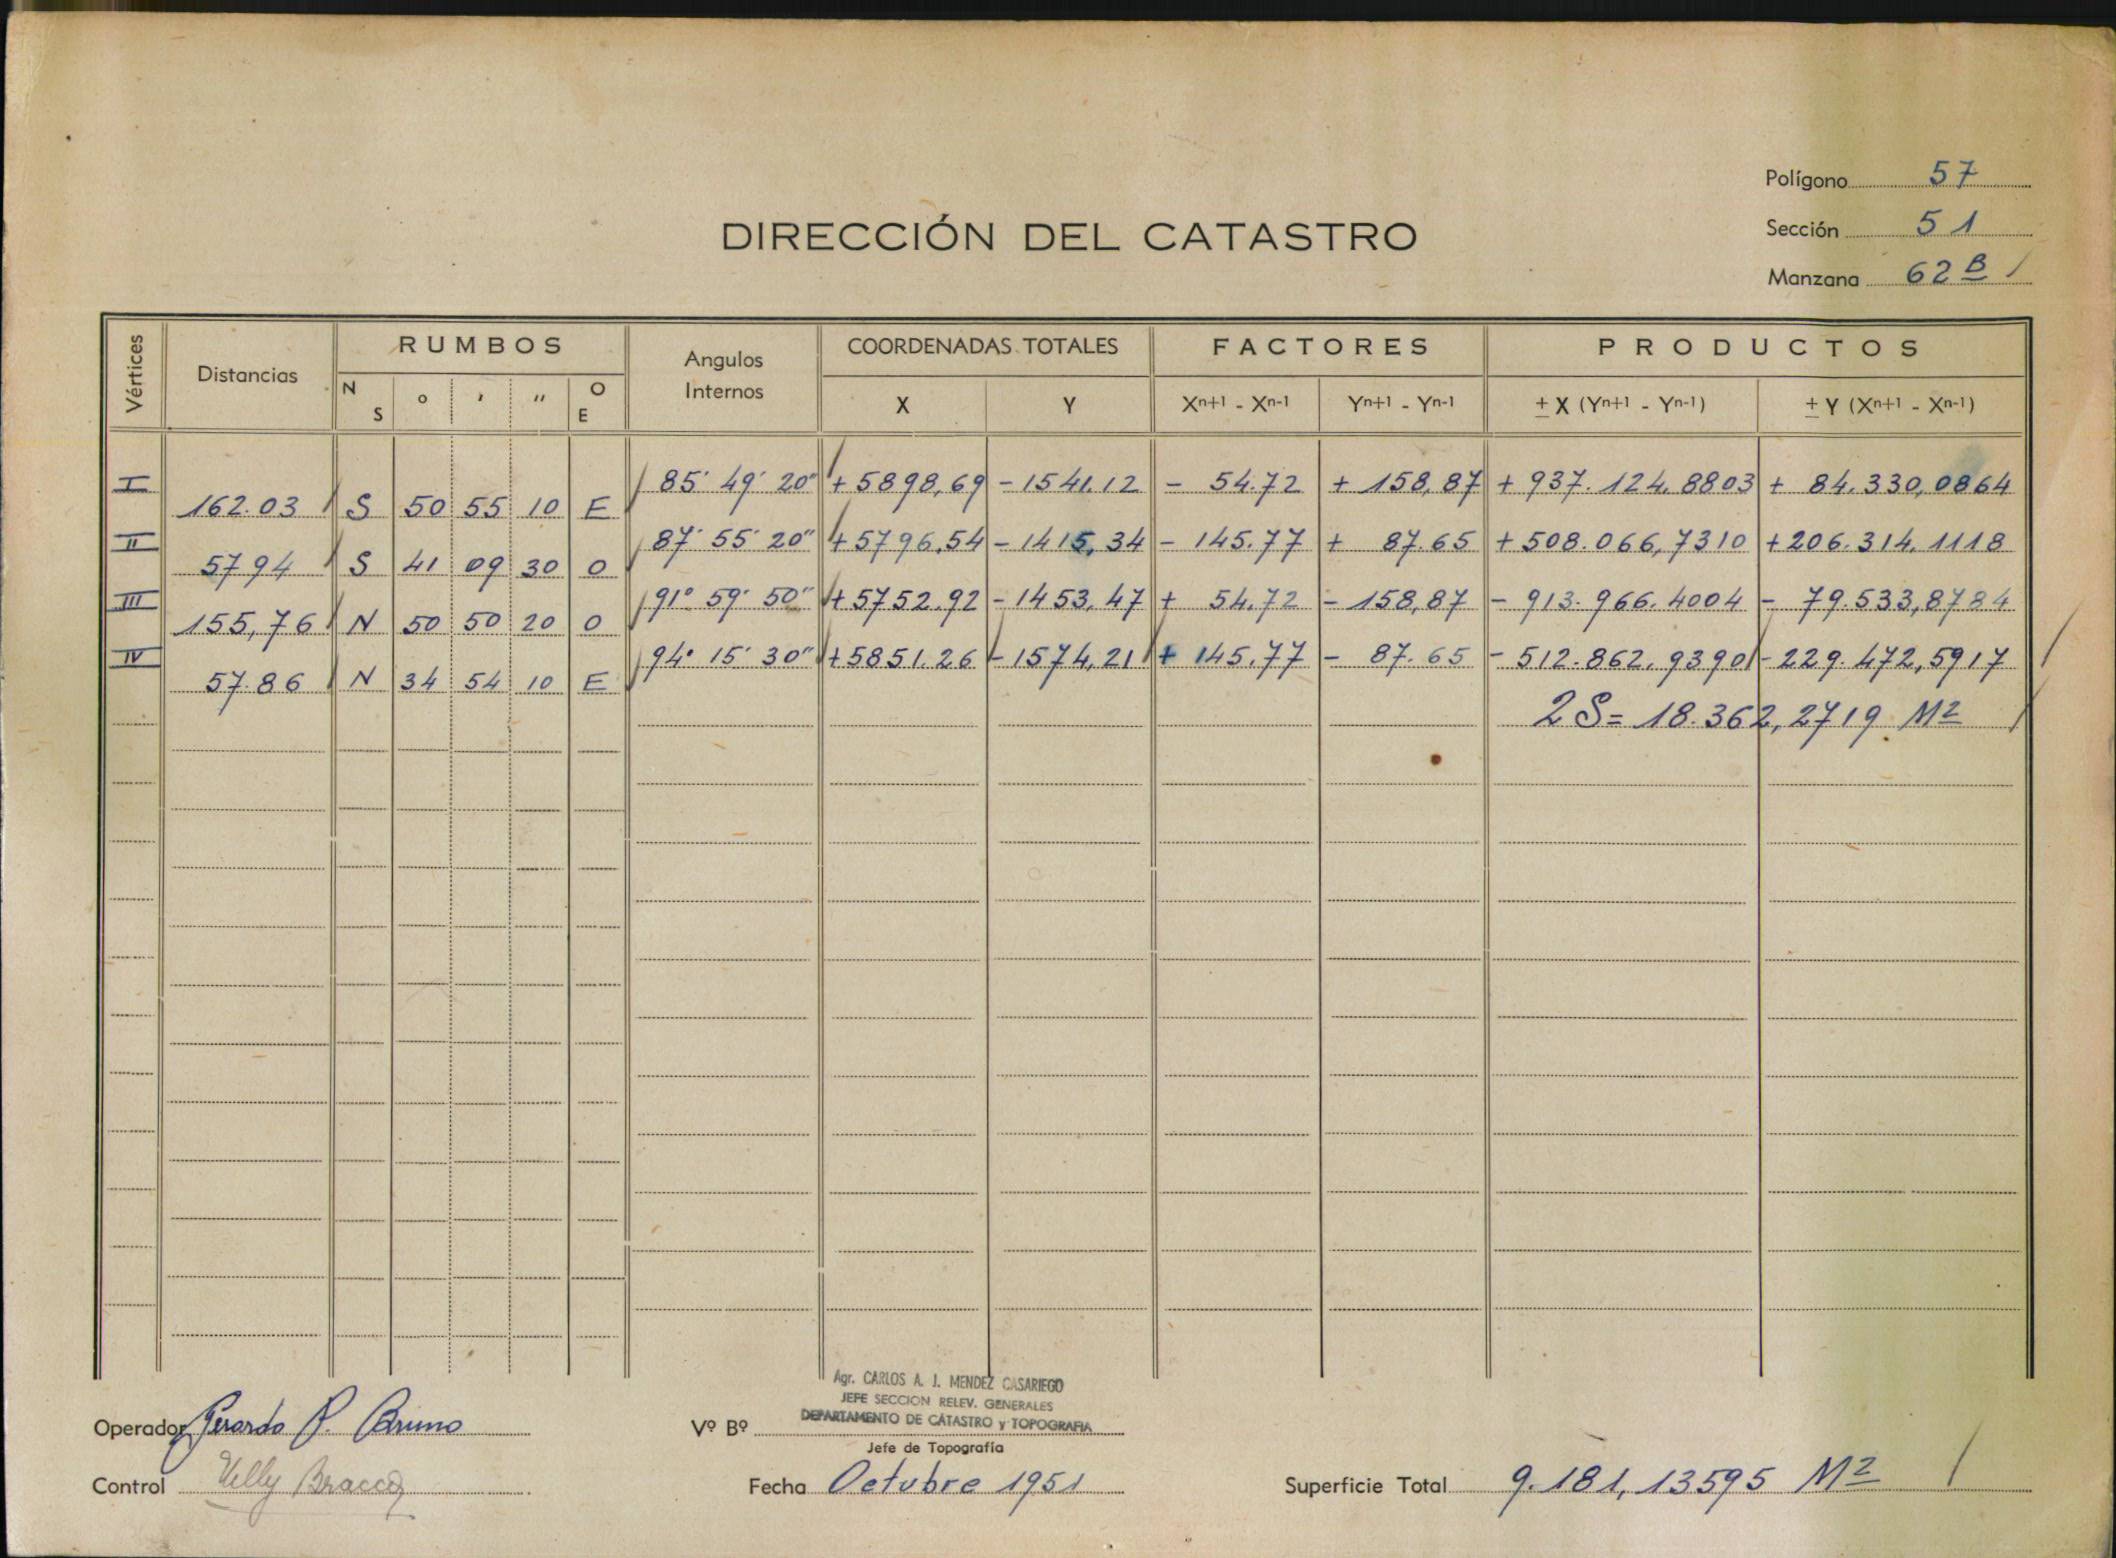 Polígono 57
Sección 51
Manzana 62 B
DIRECCIÓN DEL CATASTRO
Vértices Distancias RUMBOS Angulos Internos COORDENADAS TOTALES FACTORES PRODUCTOS
N S ° ' " O E X Y Xn+1 - Xn-1 Yn+1 - Yn-1 ± X (Yn+1 - Yn-1) ± Y (Xn+1 - Xn-1)
I 85° 49' 20" +5898,69 -1541.12 - 54.72 + 158,87 + 937.124.8803 + 84.330,0864
162.03 S 50 55 10 E
II 87° 55' 20" +5796.54 -1415,34 - 145.77 + 87.65 +508.066,7310 +206.314.1118
57.94 S 41 09 30 O
III 91° 59' 50" +5752.92 -1453.47 + 54.72 - 158,87 - 913.966.4004 - 79.533,8784
155,76 N 50 50 20 O
IV 94° 15' 30" +5851.26 -1574,21 + 145.77 - 87.65 - 512.862.9390 -229.472,5917
57.86 N 34 54 10 E
2S= 18.362,2719 M2
Agr. CARLOS A. J. MENDEZ CASARIEGO
JEFE SECCION RELEV. GENERALES
DEPARTAMENTO DE CATASTRO y TOPOGRAFIA
Operador Gerardo P. Bruno Vº Bº
Jefe de Topografía
Control Nelly Bracco Fecha Octubre 1951 Superficie Total 9.181,13595 M2